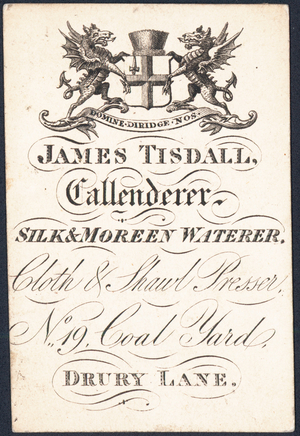 DOMINE·DIRIDGE·NOS·
JAMES TISDALL,
Callenderer,
SILK & MOREEN WATERER.
Cloth & Shawl Presser,
No. 19, Coal Yard,
DRURY LANE.